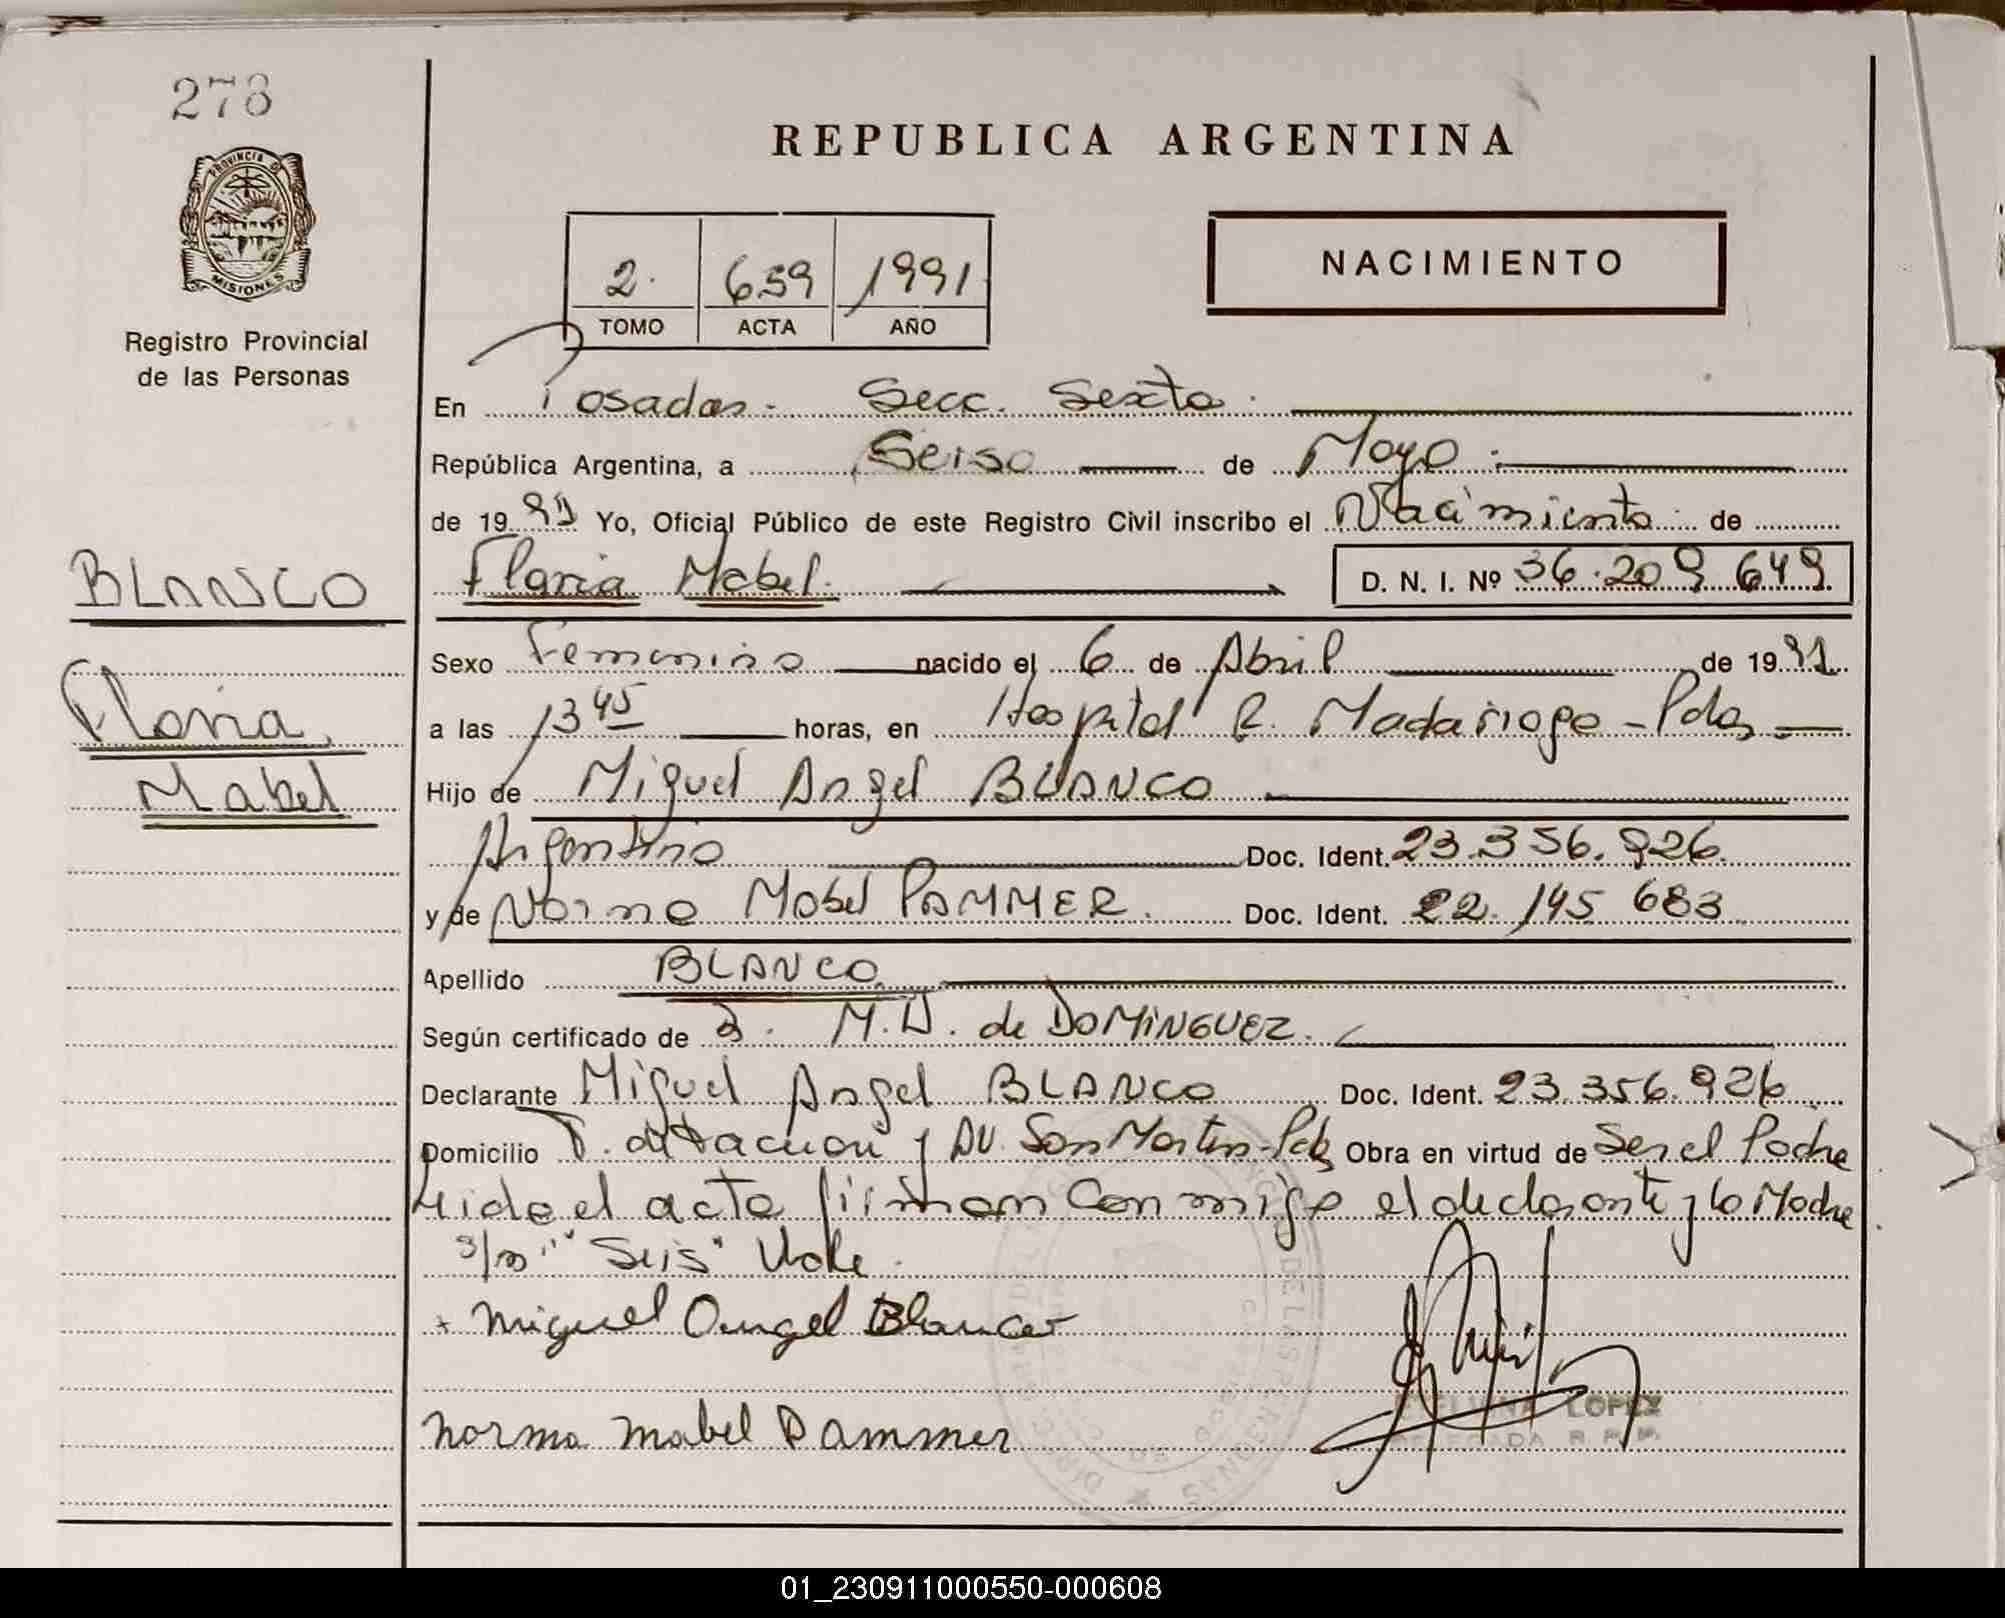 278
REPUBLICA ARGENTINA
PROVINCIA DE
MISIONES
Registro Provincial
de las Personas
2. 659 1991
TOMO ACTA AÑO
NACIMIENTO
En Posadas. Secc. Sexta.
República Argentina, a Seis de Mayo
de 1991 Yo, Oficial Público de este Registro Civil inscribo el Nacimiento de
BLANCO
Floria Mabel. D. N. I. Nº 36.209.649
Sexo Femenino nacido el 6 de Abril de 1991
Floria
a las 13 45 horas, en Hospital R. Madariaga - Pdas
Mabel
Hijo de Miguel Angel BLANCO
Argentino Doc. Ident. 23.356.926.
y de Norma Mabel PAMMER. Doc. Ident. 22.145 683
Apellido BLANCO
Según certificado de de DOMINGUEZ.
Declarante Miguel Angel BLANCO Doc. Ident. 23.356.926
Domicilio y AV. San Martin-Pdas Obra en virtud de Ser el Padre
Leida el acta firman conmigo el declarante y la Madre
"Seis" Vale.
Miguel Angel Blanco
Norma Mabel Pammer
LOPEZ
DELEGADA R. P. P.
DE LAS PERSONAS
01_230911000550-000608